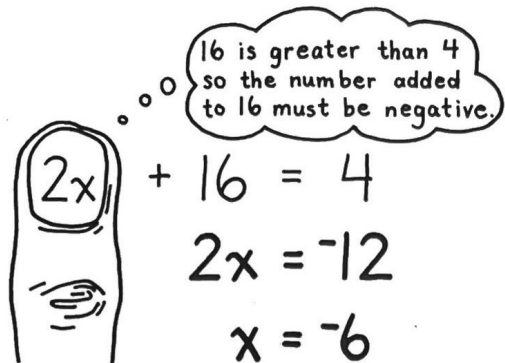 16 is greater than 4
so the number added
to 16 must be negative.
2x + 16 = 4
2x = ⁻12
x = ⁻6